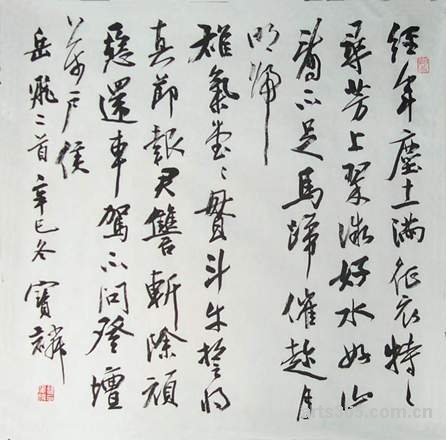 經年塵土滿征衣特々
尋芳上翠微好水好山
看不足馬蹄催趁月
明歸
雄氣堂々貫斗牛誓將
真節報君讐斬除頑
惡還車駕不問登壇
萬戶侯
岳飛二首辛巳冬寶麟